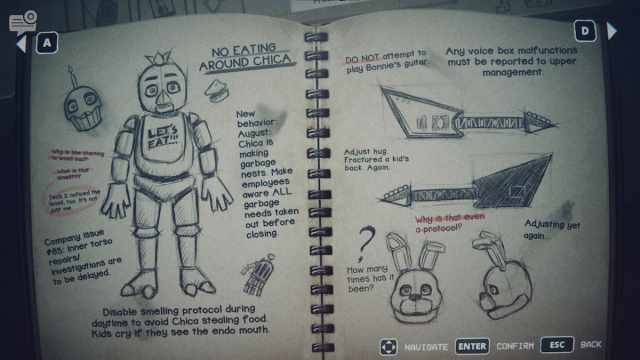 A
NO EATING
AROUND CHICA
LET'S
EAT!!!
New
behavior:
August:
Chica is
making
garbage
nests. Make
employees
aware ALL
garbage
needs taken
out before
closing.
what is that
Company issue
#85: Inner torso
repairs/
investigations are
to be delayed.
Disable smelling protocol during
daytime to avoid Chica stealing food.
Kids cry if they see the endo mouth.
D
DO NOT attempt to
play Bonnie's guitar.
Any voice box malfunctions
must be reported to upper
management.
Adjust hug.
Fractured a kid's
back. Again.
Why is that even
a protocol?
Adjusting yet
again...
?
How many
times has it
been?
NAVIGATE ENTER CONFIRM ESC BACK